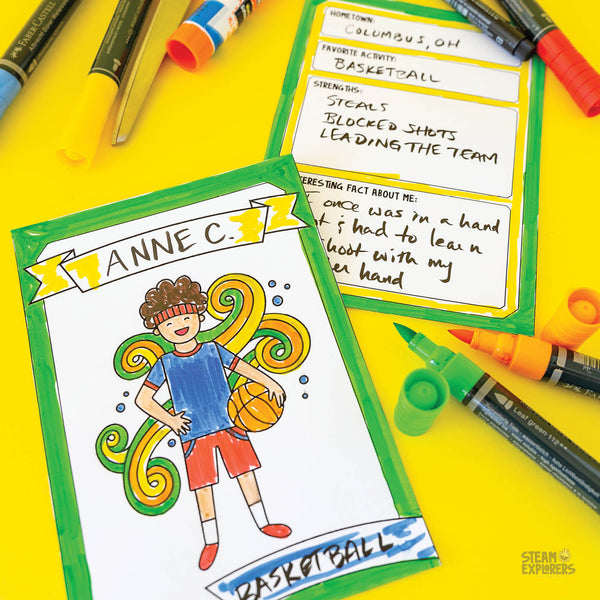 FABER-CASTELL
HOMETOWN:
COLUMBUS, OH
FAVORITE ACTIVITY:
BASKETBALL
STRENGTHS:
STEALS
BLOCKED SHOTS
LEADING THE TEAM
TERESTING FACT ABOUT ME:
I once was in a hand
i had to learn
hoot with my
hand
ANNE C.
BASKETBALL
Leaf green 112
STEAM
EXPLORERS